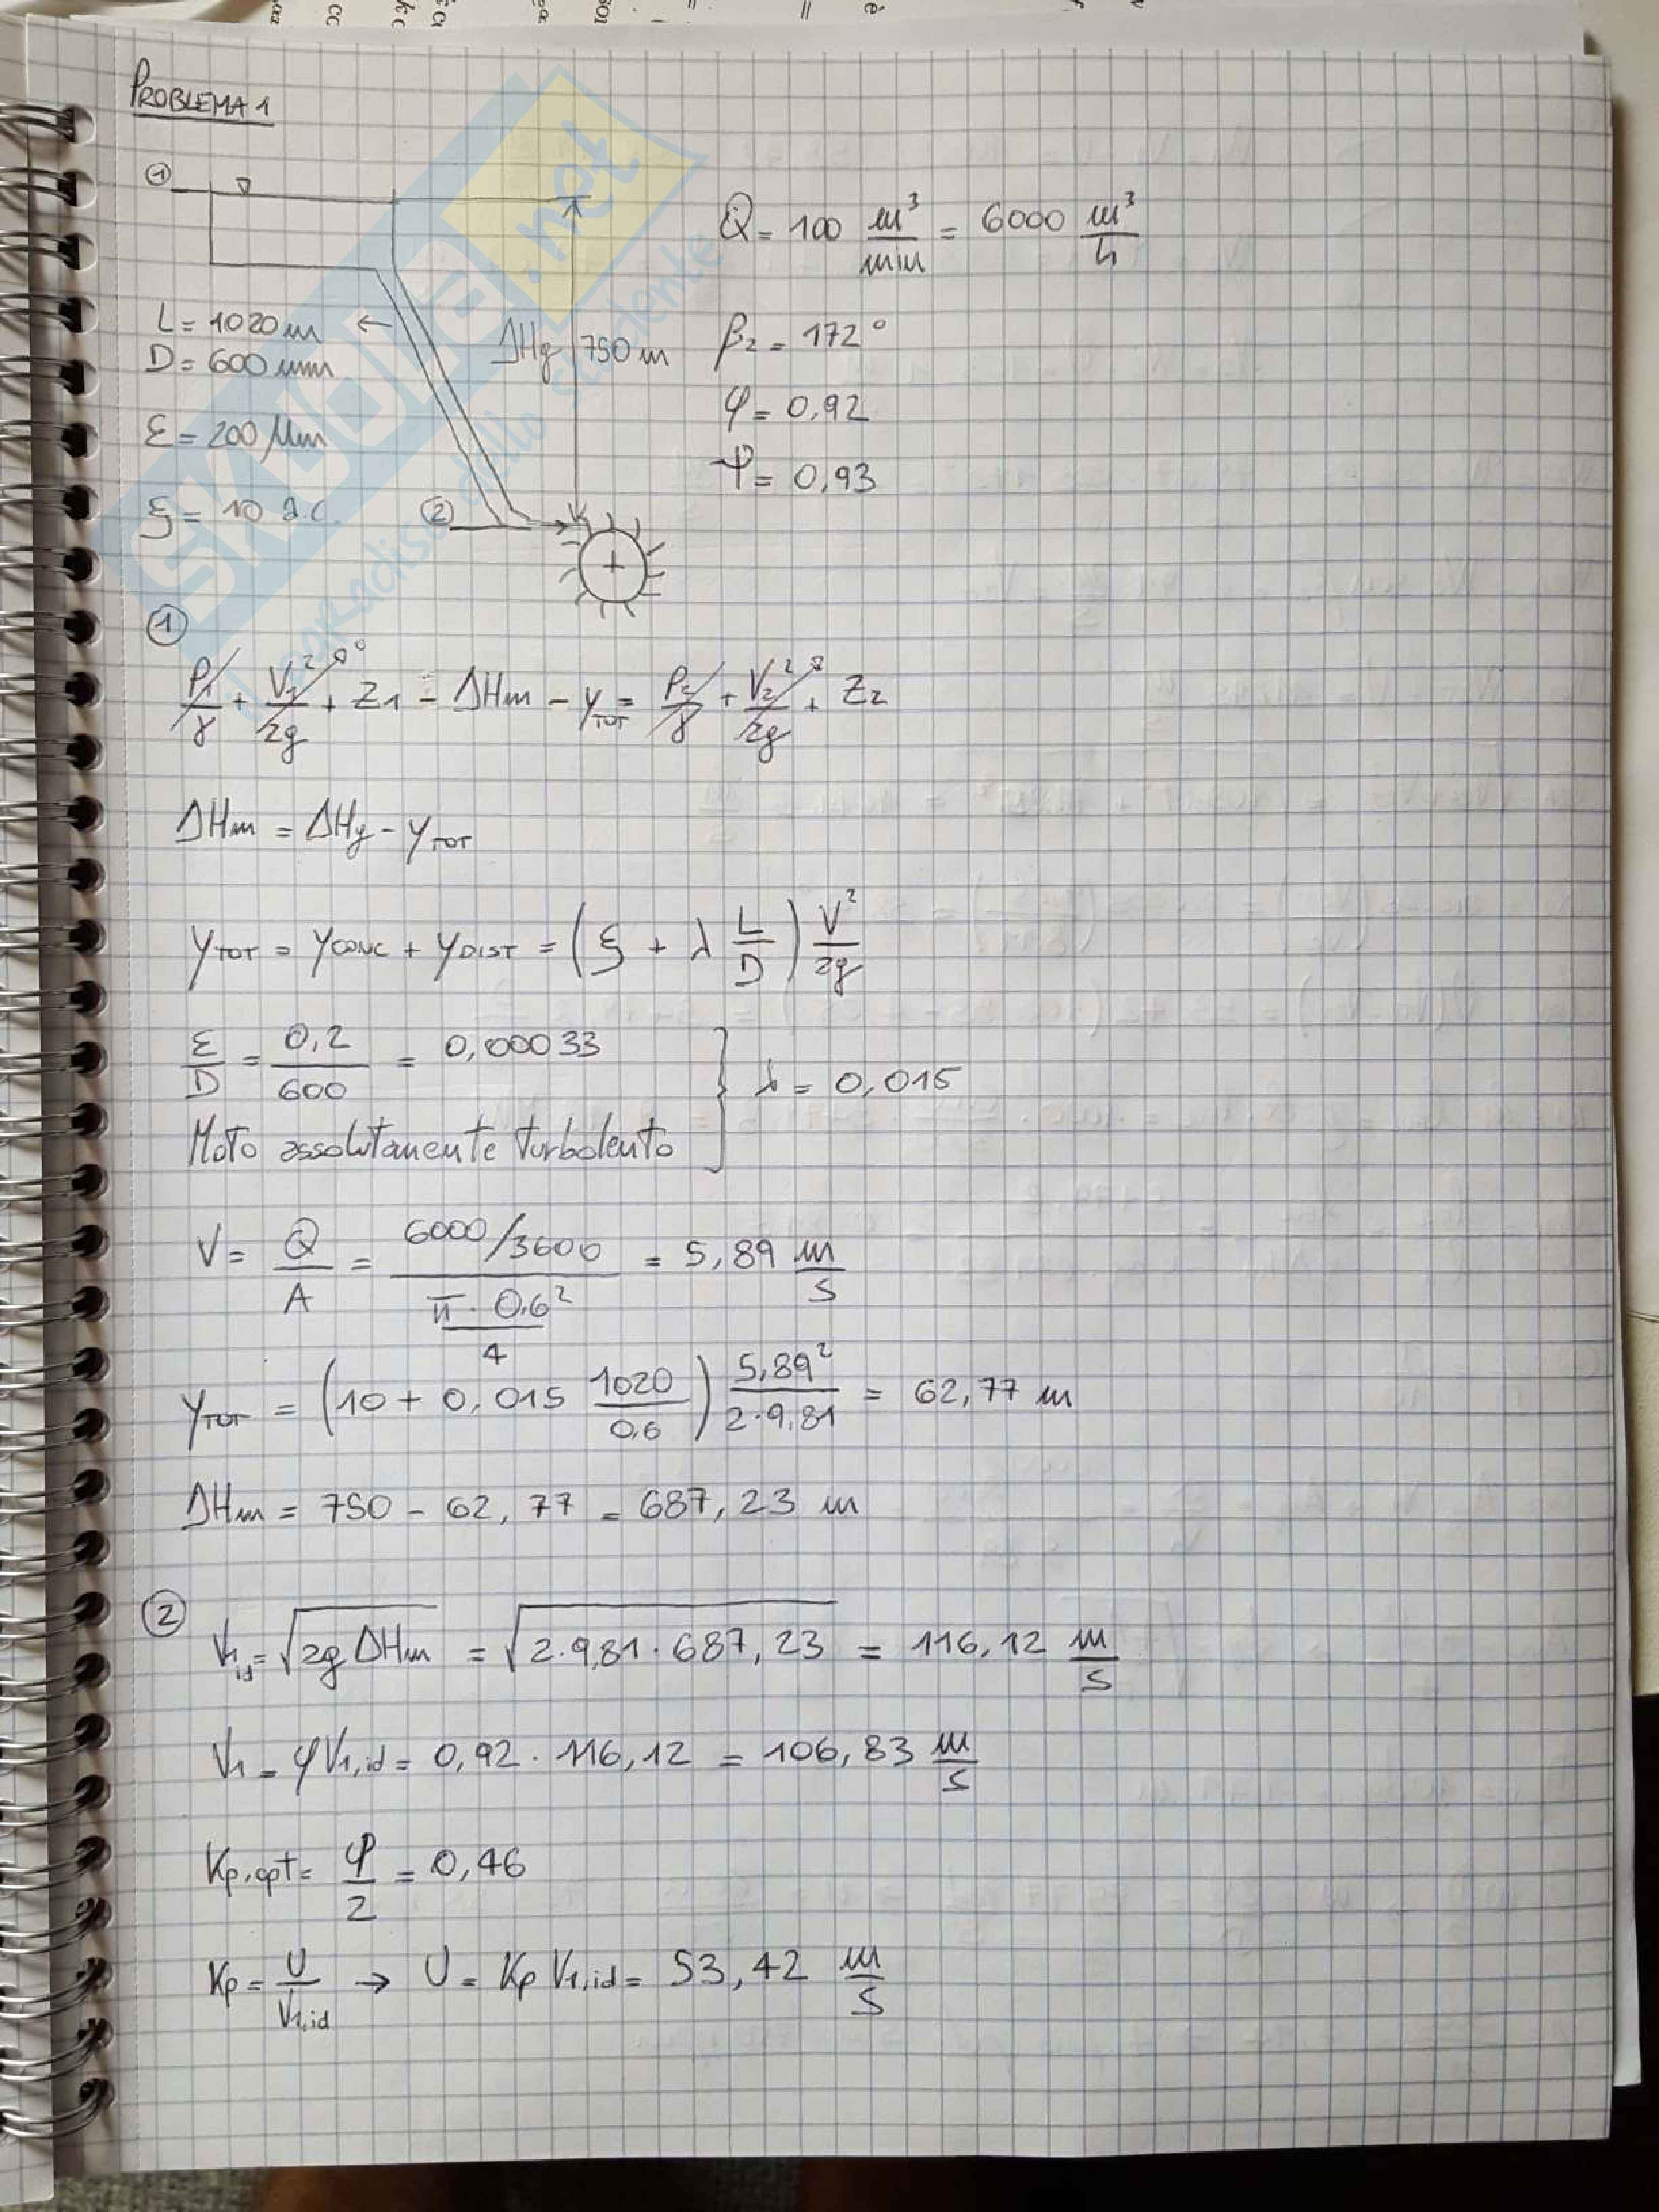 PROBLEMA 1
①
Q = 100 m³/min = 6000 m³/h
L = 1020 m
D = 600 mm
ΔHg 750 m
β₂ = 172°
φ = 0,92
ε = 200 μm
Ψ = 0,93
ξ = 10 a.c.
②
SKUOLA.net
il paradiso dello studente
①
P₁/γ + V₁²/2g → 0 + Z₁ - ΔHm - yTOT = P₂/γ + V₂²/2g → 0 + Z₂
ΔHm = ΔHg - yTOT
yTOT = yCONC + yDIST = (ξ + λ L/D) V²/2g
ε/D = 0,2/600 = 0,00033
Moto assolutamente turbolento } λ = 0,015
V = Q/A = (6000/3600)/(π · 0.6²/4) = 5,89 m/s
yTOT = (10 + 0,015 1020/0,6) 5,89²/2·9,81 = 62,77 m
ΔHm = 750 - 62,77 = 687,23 m
②
V₁,id = √2g ΔHm = √2·9,81·687,23 = 116,12 m/s
V₁ = φ V₁,id = 0,92 · 116,12 = 106,83 m/s
Kp,opt = φ/2 = 0,46
Kp = U/V₁,id → U = Kp V₁,id = 53,42 m/s